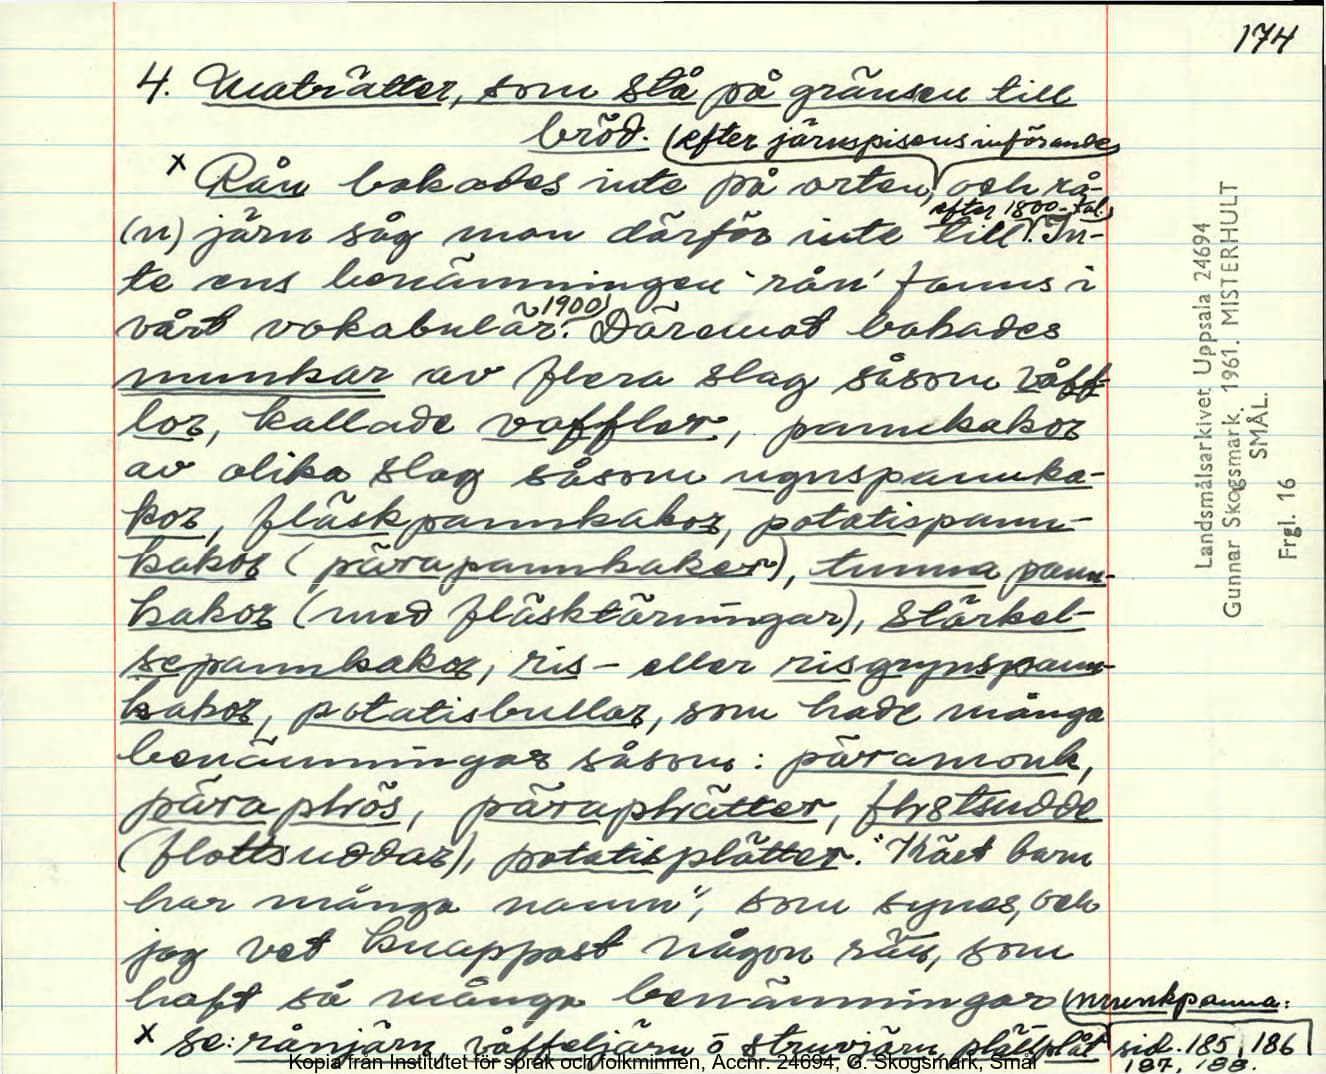 174
4. Maträtter, som stå på gränsen till
bröd. (efter järnspisens införande
x Rån bakades inte på orten, och rå-
efter 1800-tal.)
(n) järn såg man därför inte till. In-
te ens benämningen 'rån' fanns i
~1900)
vårt vokabulär. Däremot bakades
munkar av flera slag såsom våff-
lor, kallade vaffler, pannkakor
av olika slag såsom ugnspannka-
kor, fläskpannkakor, potatispann-
kakor (pärapannkaker), tunna pann-
kakor (med fläsktärningar), stärkel-
sepannkakor, ris- eller risgrynspann-
kakor, potatisbullar, som hade många
benämningar såsom: päramonk,
pära plrös, päraplrätter, flrstsudde
(flottsuddar), potatisplätter. "Kärt barn
har många namn", som synes, och
jag vet knappast någon rätt, som
haft så många benämningar (munkpanna:
x se: rånjärn, våffeljärn o struvjärn, plättplåt sid. 185, 186
187, 188.
Landsmålsarkivet Uppsala 24694
Gunnar Skogsmark. 1961. MISTERHULT
SMÅL.
Frgl. 16
Kopia från Institutet för språk och folkminnen, Accnr. 24694, G. Skogsmark, Smål